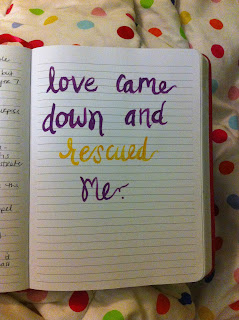 love came
down and
rescued
me.